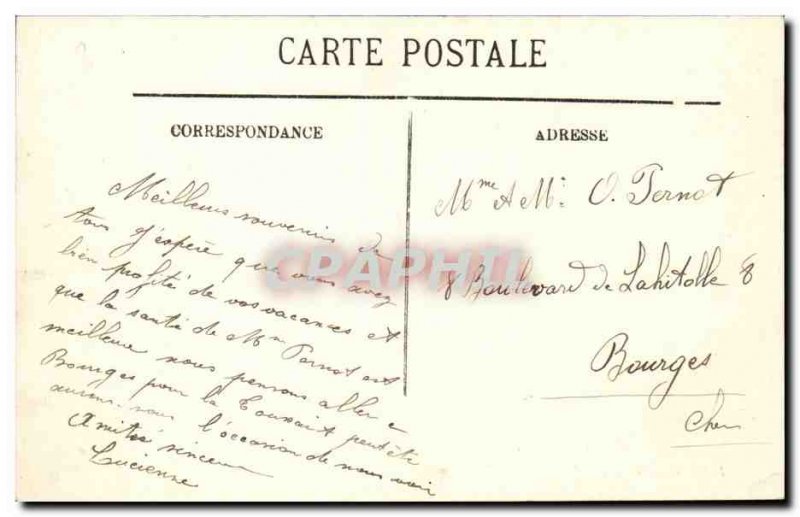 CARTE POSTALE
CORRESPONDANCE
ADRESSE
Meilleurs souvenirs de
tous j'espère que vous avez
bien profité de vos vacances et
que la santé de Mme Pernot est
meilleure nous pensons aller a
Bourges pour la Toussaint peut être
aurons-nous l'occasion de nous voir
Amitiés sincères
Lucienne
Mme et Mr O. Pernot
8 Boulevard de Lahitolle 8
Bourges
Cher
CPAPHIL